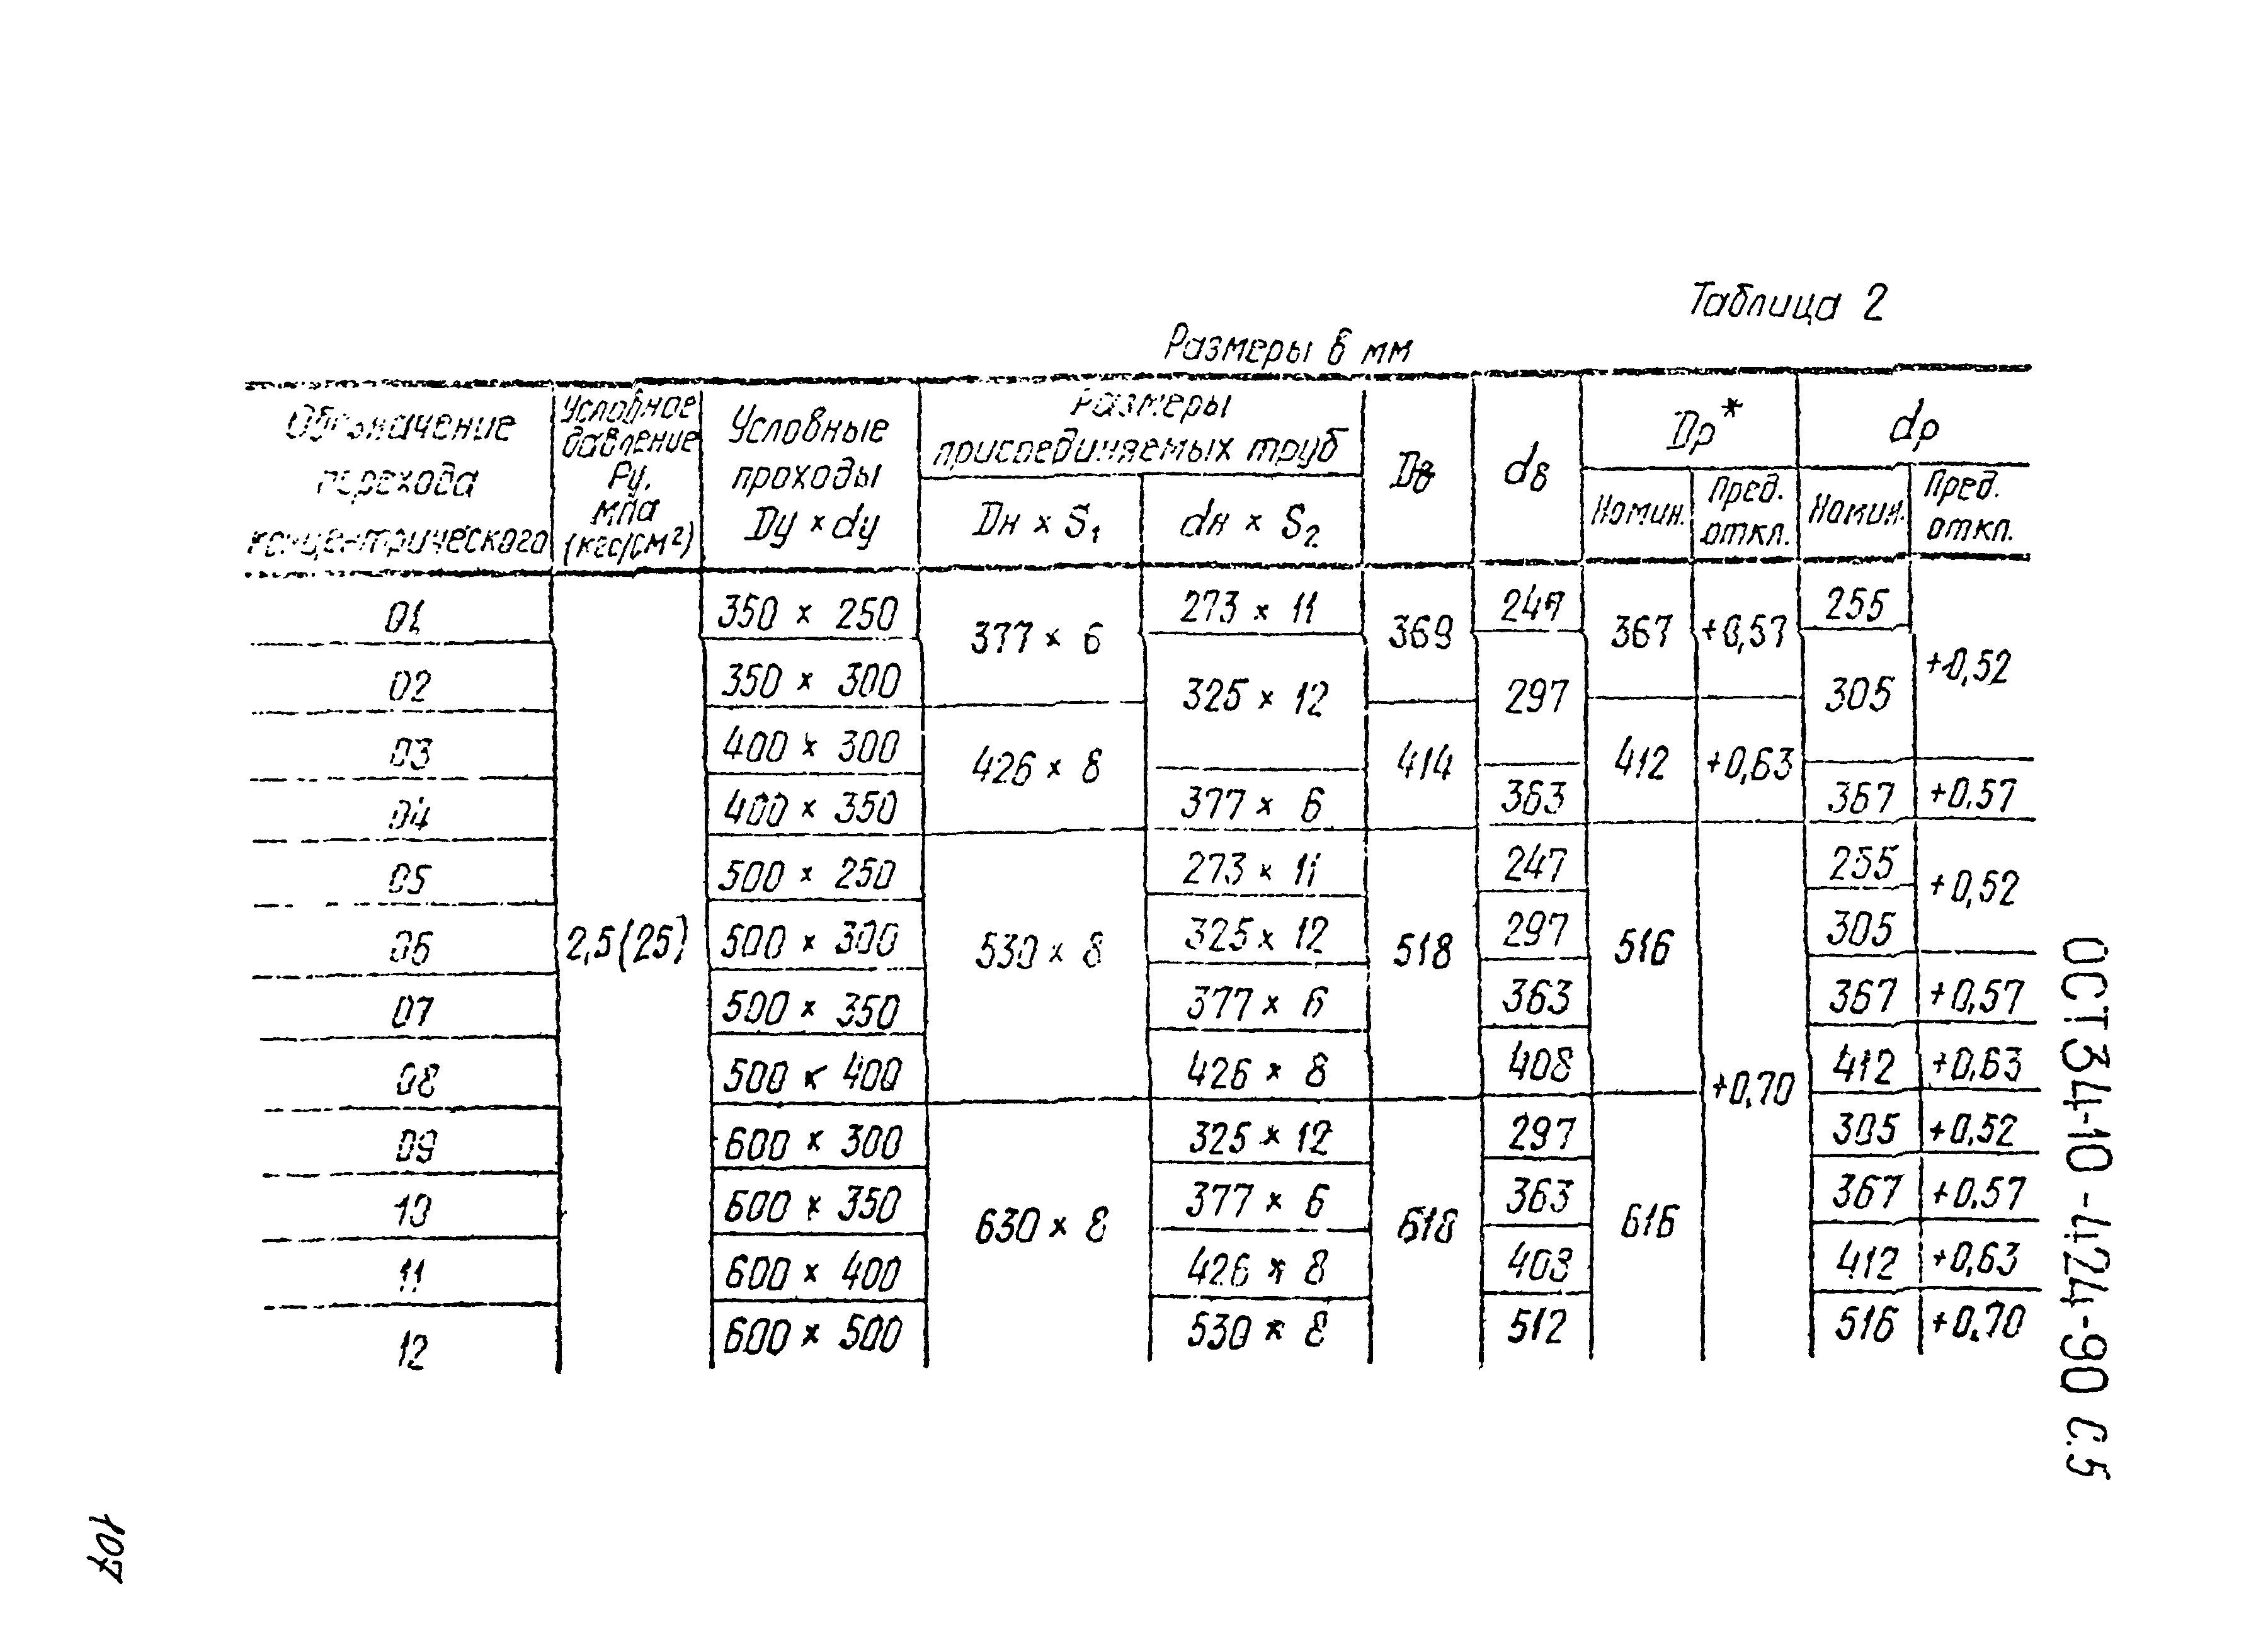 Таблица 2
Размеры в мм
Обозначение перехода концентрического
Условное давление Ру, мпа (кгс/см²)
Условные проходы Dу × dу
Размеры присоединяемых труб
Dн × S₁
dн × S₂
Dв
dв
Dр*
dр
Номин.
Пред. откл.
Номин.
Пред. откл.
01 350 × 250 377 × 6 273 × 11 369 247 367 +0,57 255 +0,52
02 350 × 300 325 × 12 297 305
03 400 × 300 426 × 8 414 412 +0,63
04 400 × 350 377 × 6 363 367 +0,57
05 500 × 250 273 × 11 247 255 +0,52
06 2,5(25) 500 × 300 530 × 8 325 × 12 518 297 516 305
07 500 × 350 377 × 6 363 367 +0,57
08 500 × 400 426 × 8 408 +0,70 412 +0,63
09 600 × 300 325 × 12 297 305 +0,52
10 600 × 350 630 × 8 377 × 6 618 363 616 367 +0,57
11 600 × 400 426 × 8 408 412 +0,63
12 600 × 500 530 × 8 512 516 +0,70
ОСТ 34-10-424-90 С.5
107